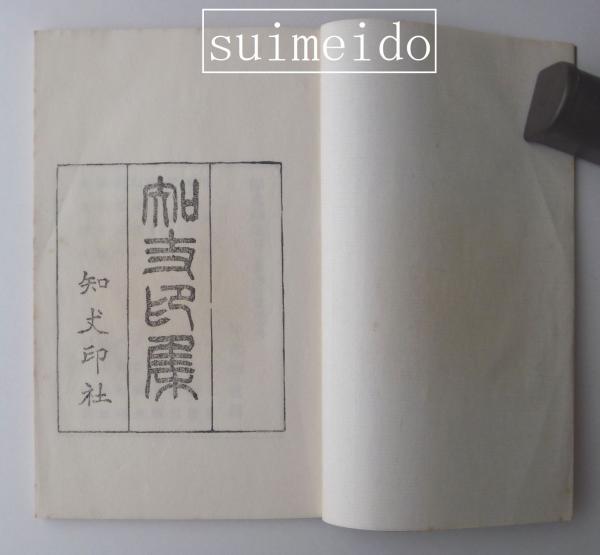 suimeido
知丈印集
知丈印社